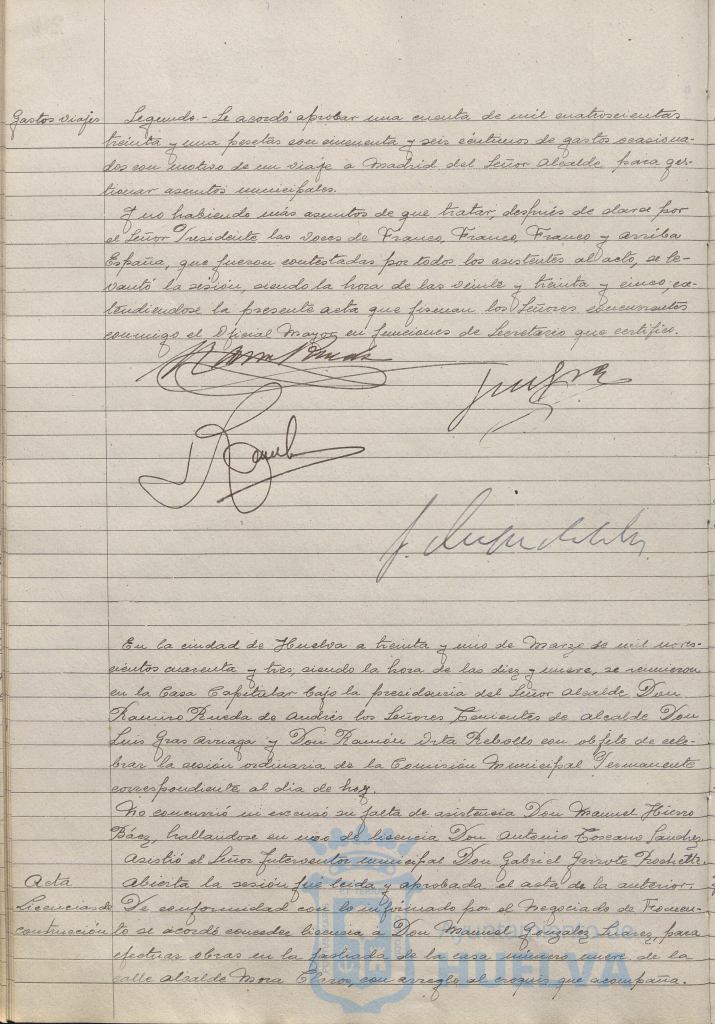 Gastos viajes Segundo.- Se acordó aprobar una cuenta de mil cuatroscientas
treinta y una pesetas con cincuenta y seis céntimos de gastos ocasiona-
dos con motivo de un viaje a Madrid del Señor Alcalde para ges-
tionar asuntos municipales.
Y no habiendo más asuntos de que tratar, después de darse por
el Señor Presidente las voces de Franco, Franco, Franco y arriba
España, que fueron contestadas por todos los asistentes al acto, se le-
vantó la sesión, siendo la hora de las veinte y treinta y cinco, ex-
tendiendose la presente acta que firman los Señores concurrentes
conmigo el Oficial Mayor en funciones de Secretario que certifico.
En la ciudad de Huelva a treinta y uno de Marzo de mil nove-
cientos cuarenta y tres, siendo la hora de las diez y nueve, se reunieron
en la Casa Capitular bajo la presidencia del Señor Alcalde Don
Ramiro Rueda de Andrés los Señores Tenientes de Alcalde Don
Luis Gras Arriaga y Don Ramón Orta Rebollo con objeto de cele-
brar la sesión ordinaria de la Comisión Municipal Permanente
correspondiente al día de hoy.
No concurrió ni excusó su falta de asistencia Don Manuel Hierro
Báez, hallandose en uso de licencia Don Antonio Toscano Sánchez.
Asistió el Señor Interventor municipal Don Gabriel Garrote
Acta Abierta la sesión fué leida y aprobada el acta de la anterior.
Licencias de De conformidad con lo informado por el Negociado de Fomen-
contrucción to se acordó conceder licencia a Don Manuel González Suarez, para
efectuar obras en la fachada de la casa número nueve de la
calle Alcalde Mora Claros, con arreglo al croquis que acompaña.
Ayuntamiento de
HUELVA